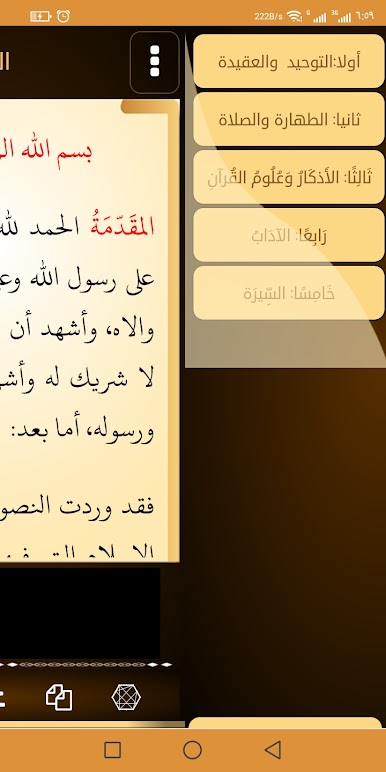 222B/s 3G ٦:٥٩
أولا:التوحيد والعقيدة
ثانيا: الطهارة والصلاة
ثَالِثًا: الأَذكَارُ وَعُلُومُ القُرآنِ
رَابِعًا: الآدَابُ
خَامِسًا: السِّيرَة
بسم الله
المقَدّمَةُ الحمد لله
على رسول الله
والاه، وأشهد أن
لا شريك له
ورسوله، أما بعد:
فقد وردت